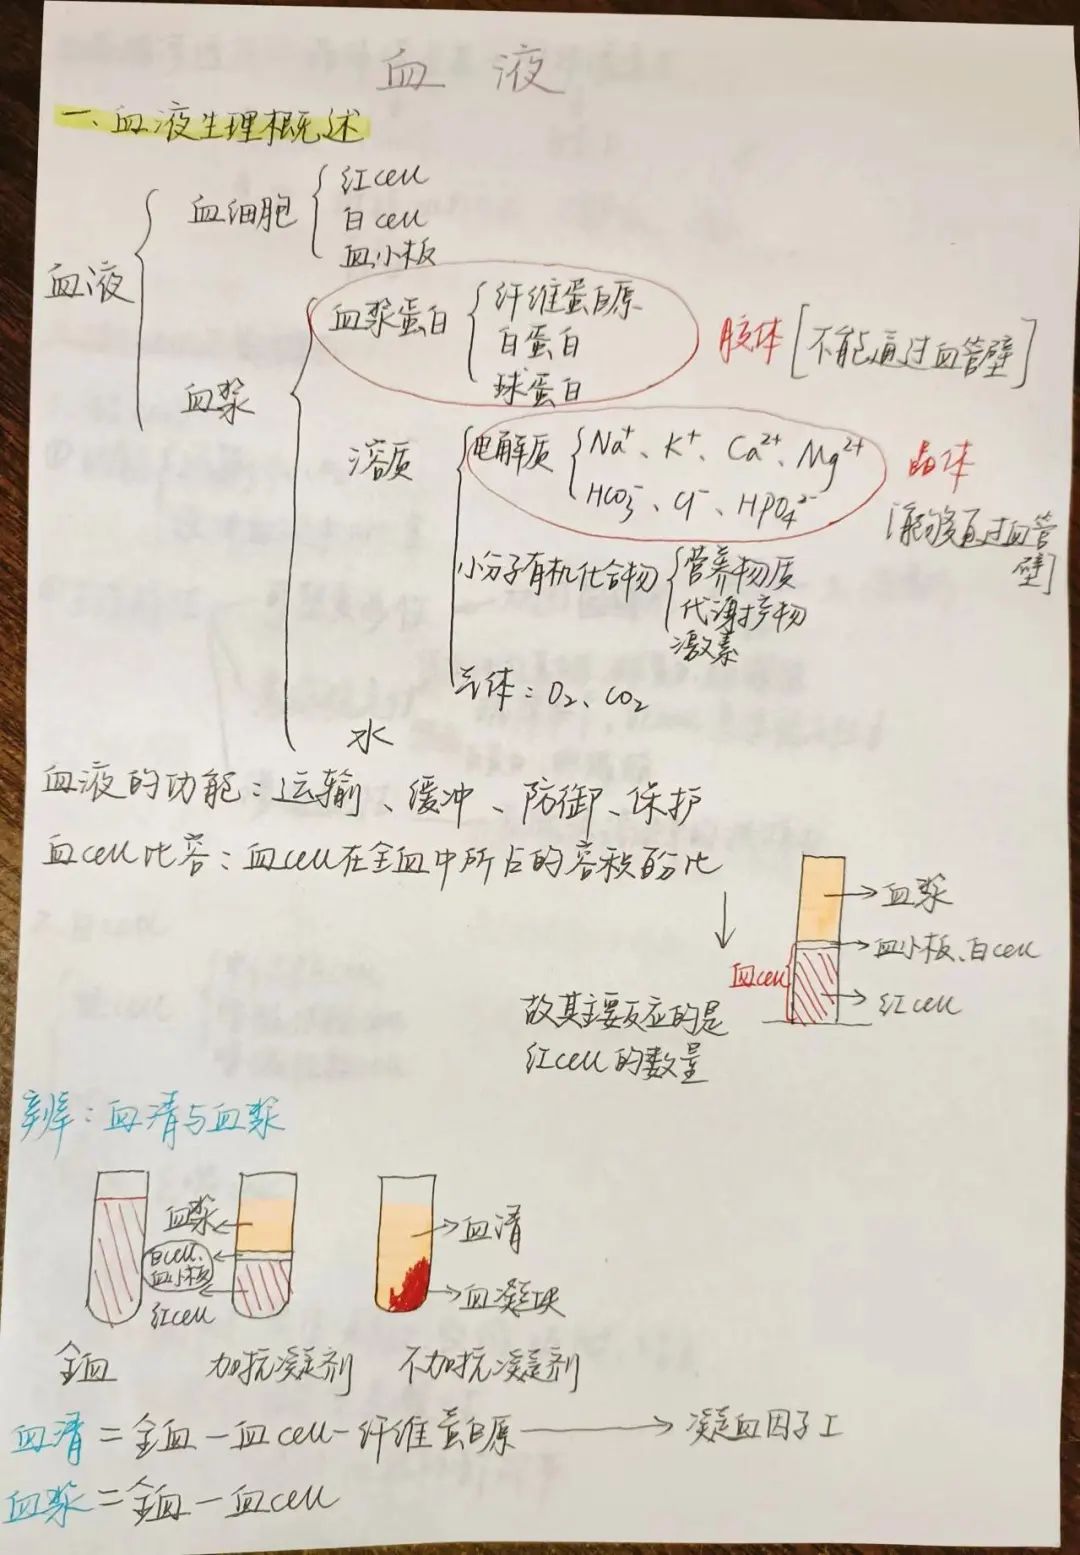 血 液
一、血液生理概述
血液
血细胞
红cell
白cell
血小板
血浆
血浆蛋白
纤维蛋白原
白蛋白
球蛋白
胶体[不能通过血管壁]
溶质
电解质
Na⁺、K⁺、Ca²⁺、Mg²⁺
HCO₃⁻、Cl⁻、HPO₄²⁻
晶体
[能够通过血管
壁]
小分子有机化合物
营养物质
代谢产物
激素
气体:O₂、CO₂
水
血液的功能:运输、缓冲、防御、保护
血cell比容:血cell在全血中所占的容积百分比
血浆
血小板、白cell
血cell
红cell
故其主要反应的是
红cell的数量
辨:血清与血浆
血浆
白cell、
血小板
红cell
血清
血凝块
全血
加抗凝剂
不加抗凝剂
血清=全血-血cell-纤维蛋白原→凝血因子I
血浆=全血-血cell